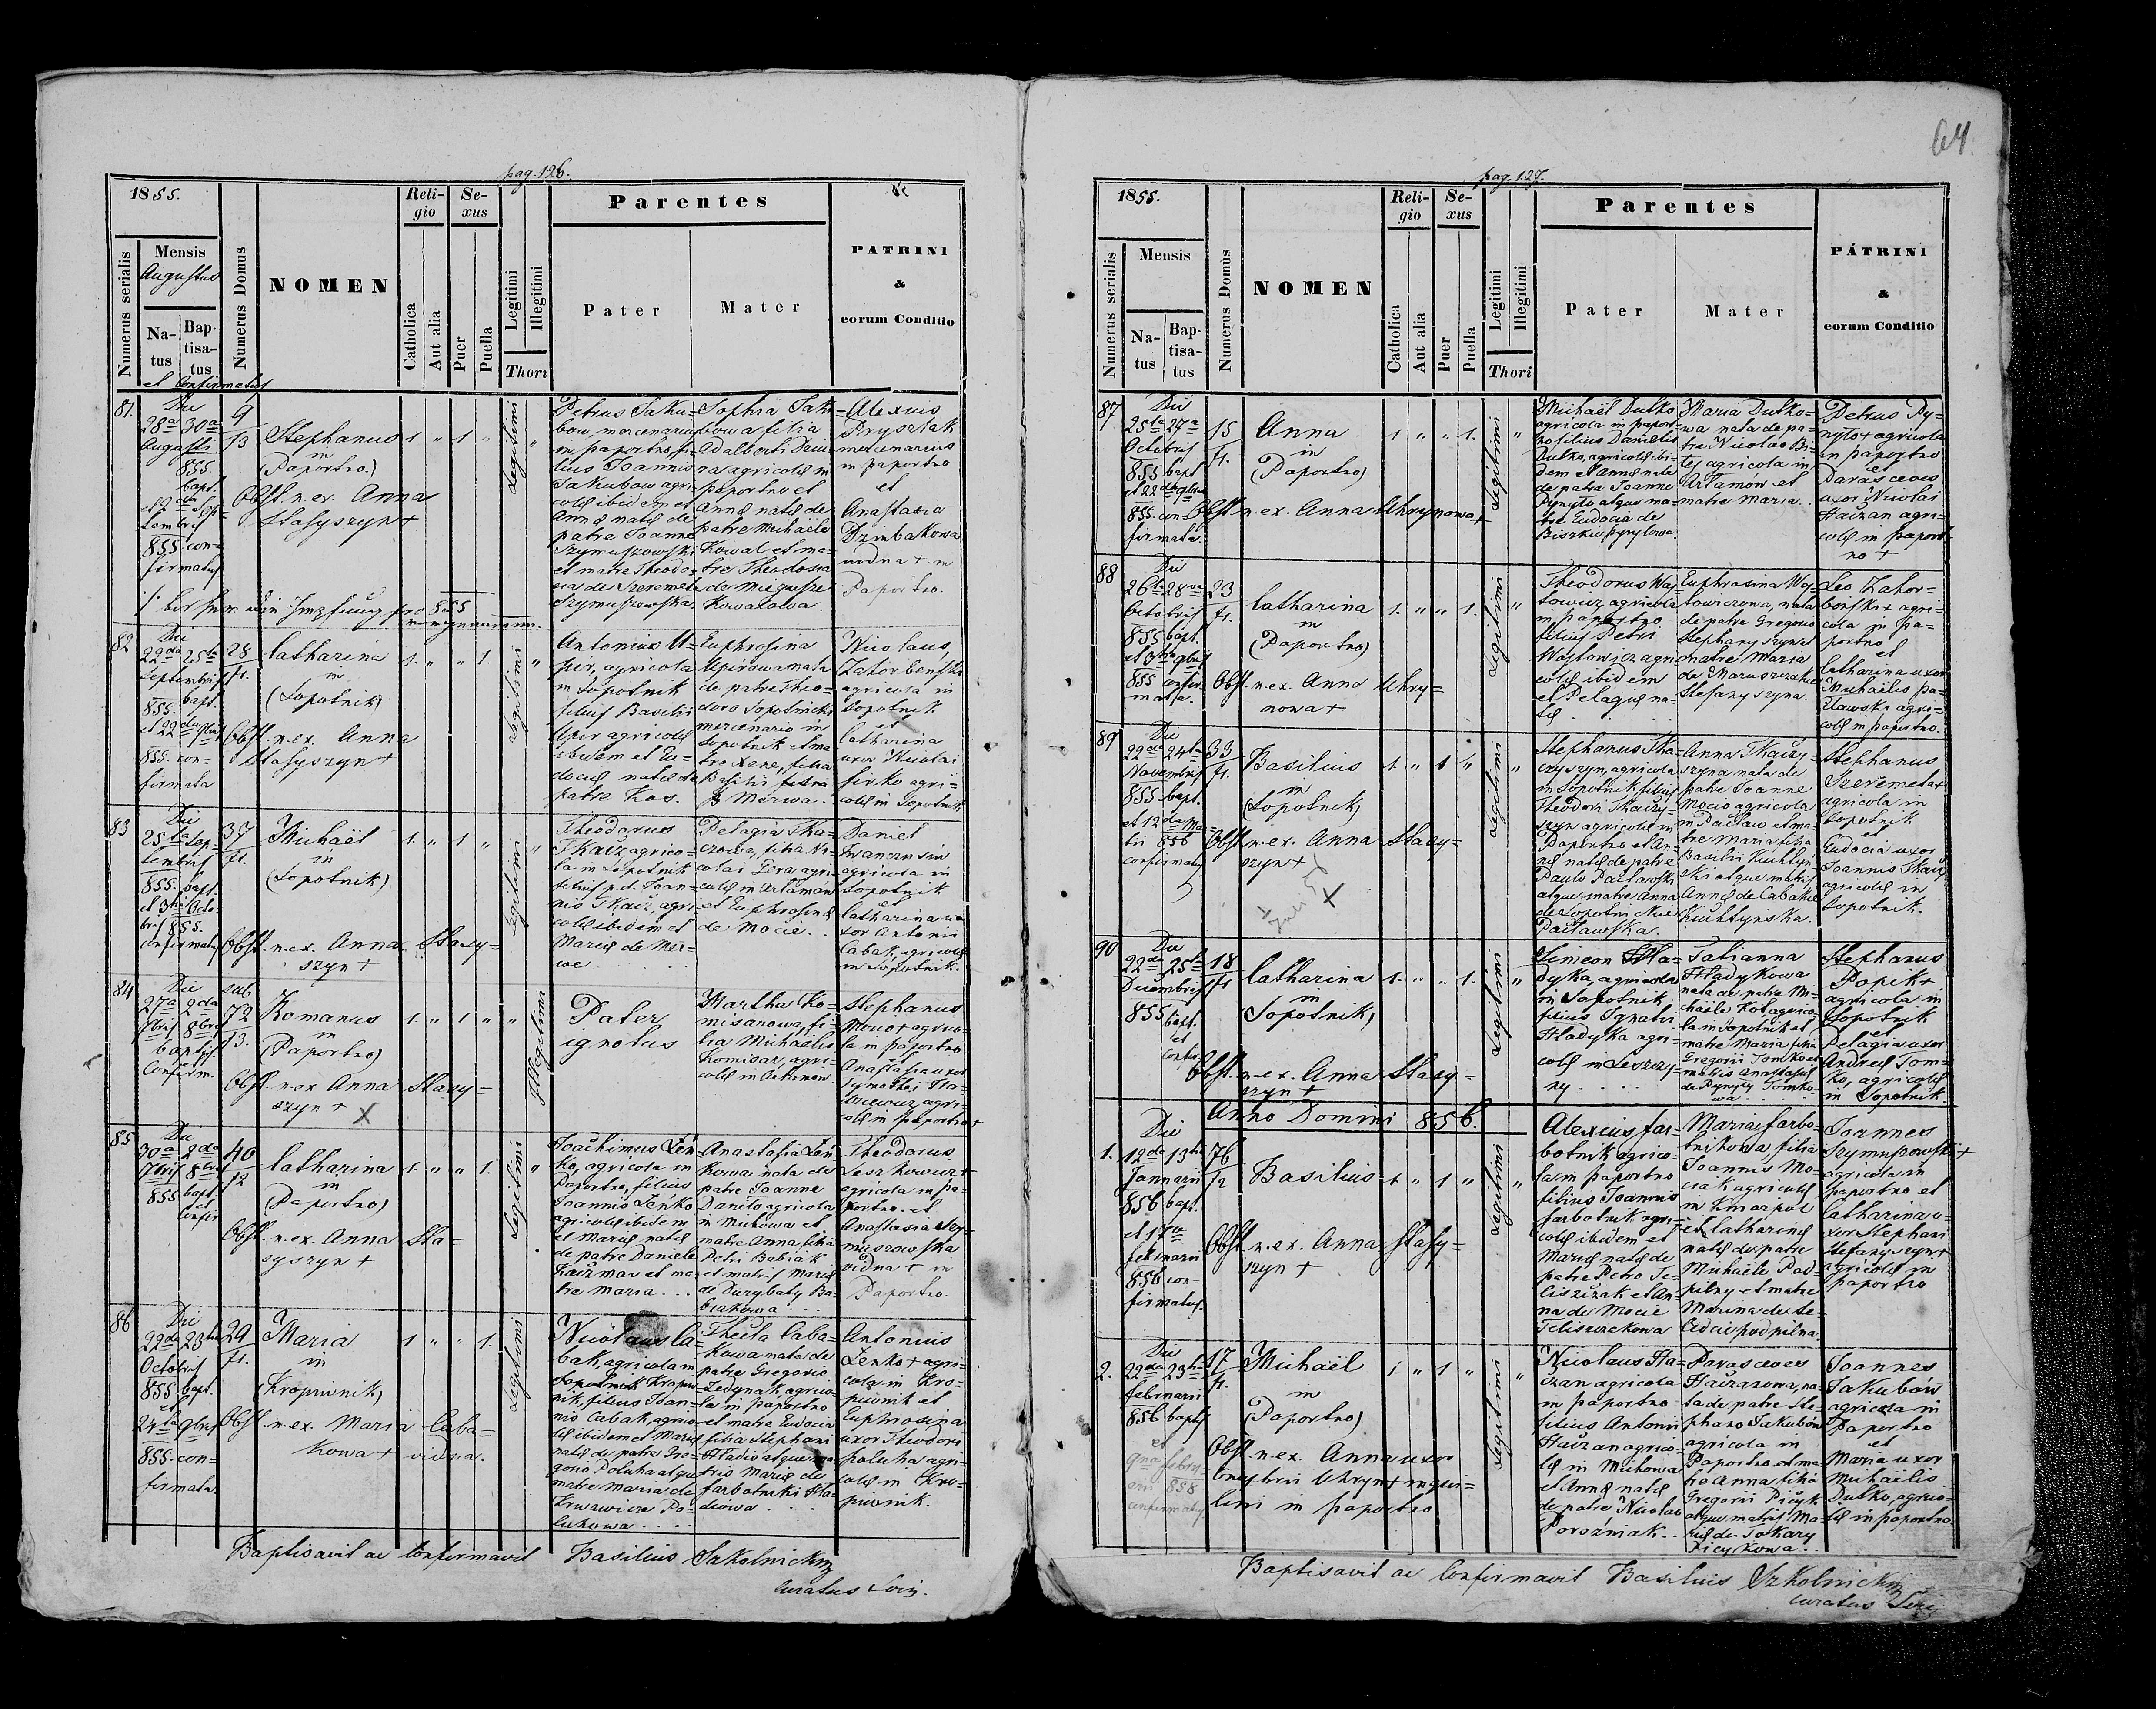 pag. 126.
1855.
Numerus serialis
Mensis
Augustus
Natus
Baptisatus
et Confirmatus
Numerus Domus
NOMEN
Religio
Catholica
Aut alia
Sexus
Puer
Puella
Legitimi
Illegitimi
Thori
Parentes
Pater
Mater
PATRINI
&
eorum Conditio
81.
Die
28a 30a
Augusti
855
bapt.
855 con-
firmatus
9
13
Stephanus
in
(Paportno)
Obst. n. ex. Anna
Stasyszyn +
1 " 1 "
Legitimi
"
Petrus Jaku-
bow, mercenarius
in paportno, fi-
lius Joannis
Jakubow agri-
colæ ibidem et
Annæ natæ de
patre Joanne
Szymuszowski
et matre Theodo-
sia de Szeremeta
Szymuszowska.
Sophia Jaku-
bowa filia
Adalberti
agricolæ in
paportno et
Annæ natæ de
patre Michaele
Kowal et ma-
tre Theodosia
Kowalowa.
Alexius
Pryslak
mercenarius
in paportno
et
Anastasia
Dzimbakowa
vidua + in
Paportno.
82
Die
22da 25ta
Septembris
855. bapt.
855. con-
firmata
28
71.
Catharina
in
(Sopotnik)
Obst. n. ex. Anna
Stasyszyn +
1. " " 1.
Legitimi
"
Antonius U-
pir, agricola
in Sopotnik
filius Basilii
Upir agricolæ
ibidem et Eu-
dociæ natæ de
patre Kos.
Euphrosina
Upirowa nata
de patre Theo-
doro Sopotnicki
mercenario in
Sopotnik et ma-
tre Xene, filia
Basilii
Merwa.
Nicolaus
Zahorbenski
agricola in
Sopotnik
et
Catharina
uxor Nicolai
Firko agri-
colæ in Sopotnik
83
Die
25ta Sep-
tembris
855. bapt.
et 3tia Octo-
bris 855.
confirmatus
37
71.
Michaël
in
(Sopotnik)
Obst. n. ex. Anna Stasy-
szyn +
1. " 1 "
Legitimi
"
Theodorus
Tkacz, agrico-
la in Sopotnik
filius p. d. Joan-
nis Tkacz, agri-
colæ ibidem et
Mariæ de Mer-
we
Pelagia Tka-
czowa, filia Ni-
colai agri-
colæ in Artamow
et Euphrosinæ
de Mocie.
Daniel
agricola in
Sopotnik
et
Catharina u-
xor Antonii
Cabak, agricolæ
in Sopotnik.
84
Die
27a 2da
7bris 8bris
baptis.
Confirm.
sub
72
13.
Romanus
in
(Paportno)
Obst. n. ex Anna Stasy-
szyn + X
1. " 1 " "
Illegitimi
Pater
ignotus
Martha Ko-
misarowa, fi-
lia Michaelis
Komisar, agri-
colæ in Artamow.
Stephanus
Moc + agrico-
la in paportno
et
Anastasia uxor
agri-
colæ in paportno +
85
Die
30a 2da
7bris 8bris
855 bapt.
et
confir
40
72
Catharina
in
(Paportno)
Obst. n. ex. Anna Sta-
syszyn +
1. " " 1.
Legitimi
"
Joachimus Zen-
ko, agricola in
Paportno, filius
Joannis Zenko
agricolæ ibidem
et Mariæ natæ
de patre Daniele
Kaczmar et ma-
tre Maria
Anastasia Zen-
kowa, nata de
patre Joanne
Danilo agricola
in Michowa et
matre Anna filia
Petri Babiak
et matris Mariæ
Ba-
biakowa
Theodorus
Leszkowicz +
agricola in pa-
portno. et
Anastasia Szy-
muszowska
vidua + in
Paportno.
86
Die
22da 23tia
Octobris
855 bapt.
et
24ta 9bris
855. con-
firmata.
29
71.
Maria
in
(Kropiwnik)
Obst. n. ex. Maria Caba-
kowa + vidua.
1 " " 1.
Legitimi
Nicolaus Ca-
bak, agricola in
Kropiw-
nik, filius Joan-
nis Cabak, agrico-
læ ibidem et Mariæ
natæ de patre Gre-
gorio Poluha atque
matre Maria de
Krwawicza Po-
luhowa
Thecla Caba-
kowa nata de
patre Gregorio
Zedynak, agrico-
la in paportno
et matre Eudocia
filia Stephani
Hladio atque ma-
tris Mariæ de
Farbotniki Hla-
diowa
Antonius
Zenko + agri-
cola in Kro-
piwnik et
Euphrosina
uxor Theodori
poluha agri-
colæ in Kro-
piwnik.
Baptisavit ac Confirmavit Basilius Szkolnickij
Curatus Loci.
64
pag. 127.
1855.
Numerus serialis
Mensis
Natus
Baptisatus
Numerus Domus
NOMEN
Religio
Catholica
Aut alia
Sexus
Puer
Puella
Legitimi
Illegitimi
Thori
Parentes
Pater
Mater
PATRINI
&
eorum Conditio
87
Die
25ta 27a
Octobris
855 bapt
et 22da 9bris
855. con-
firmata.
15
71.
Anna
in
(Paportno)
Obst. n. ex. Anna Uhrynowa +
1 " " 1.
Legitimi
"
Michaël Dutko
agricola in paport-
no filius Danielis
Dutko, agricolæ ibi-
dem et Annæ natæ
de patre Joanne
Pynylo atque ma-
tre Eudocia de
Biszki Pynylowa.
Maria Dutko-
wa nata de pa-
tre Nicolao Bi-
les agricola in
Artamow et
matre Maria.
Petrus Py-
nylo + agricola
in paportno
et
Parasceves
uxor Nicolai
Haczan agri-
colæ in paport-
no +
88
Die
26ta 28va
Octobris
855 bapt.
et 3tia 9bris
855 confir-
mata.
23
71.
Catharina
in
(Paportno)
Obst. n. ex. Anna Uhry-
nowa +
1. " " 1.
Legitimi
"
Theodorus Woj-
towicz, agricola
in paportno
filius Petri
Wojtowicz agri-
colæ ibidem
et Pelagiæ na-
tæ
Euphrosina Woj-
towiczowa, nata
de patre Gregorio
Stephanyszyn et
matre Maria
Stefanyszyna.
Leo Zahor-
benski + agri-
cola in pa-
portno
et
Catharina uxor
Michaëlis pa-
clawski agri-
colæ in paportno.
89
Die
22da 24ta
Novembris
855 bapt.
et 12da Mar-
tii 856
confirmatus
33
71.
Basilius
in
(Sopotnik)
Obst. n. ex. Anna Stasy-
szyn +
X
1. " 1 "
Legitimi
"
Stephanus Tka-
czyszyn, agricola
in Sopotnik, filius
Theodori Tkaczy-
szyn agricolæ in
Paportno et An-
næ natæ de patre
Paulo Paclawski
atque matre Anna
de Sopotnickie
Paclawska.
Anna Tkaczy-
szyna nata de
patre Joanne
Mocio agricola
in Paclaw et ma-
tre Maria filia
Basilii Kuchtyn-
ski atque matris
Annæ de Cabakie
Kuchtynska.
Stephanus
Szeremeta +
agricola in
Sopotnik
et
Eudocia uxor
Joannis Tkacz
agricolæ in
Sopotnik.
90
Die
22da 25ta
Decembris
855 bapt.
et
confir.
18
71
Catharina
in
Sopotnik)
Obst. n. ex. Anna Stasy-
szyn +
1. " " 1.
Legitimi
"
Simeon Hla-
dyka, agricola
in Sopotnik
filius Ignatii
Hladyka agri-
colæ in Leszczy-
ny
Tatianna
Hladykowa
nata de patre Mi-
chaele Kot agrico-
la in Sopotnik et
matre Maria filia
Gregorii Tomko et
matris Anastasiæ
de Pynyly Tomko-
wa
Stephanus
Popik +
agricola in
Sopotnik
et
Pelagia uxor
Andreæ Tom-
ko, agricolæ
in Sopotnik.
Anno Domini 856.
1.
Die
12da 13tia
Januarii
856 bapt.
et 17a
februarii
856 con-
firmatus.
76
72
Basilius
Obst. n. ex. Anna Stasy-
szyn +
1 " 1 "
Legitimi
"
Alexius far-
botnik agrico-
la in paportno
filius Joannis
farbotnik agri-
colæ ibidem et
Mariæ natæ de
patre Petro Te-
liszczak et An-
na de Mocie
Teliszczakowa
Maria farbo-
tnikowa, filia
Joannis Mo-
ciak agricolæ
et Catharinæ
natæ de patre
Michaële Pod-
pilny et matre
Marina de
podpilna.
Joannes
Szymuszowski +
agricola in
paportno et
Catharina u-
xor Stephani
Stefanyszyn +
agricolæ in
paportno
2.
Die
22da 23tia
februarii
856 baptis
et
855 con-
firmatus
17
71.
Michaël
in
(Paportno)
Obst. n. ex. Anna uxor
Uhryn + inqui-
lini in paportno
1. " 1 "
Legitimi
"
Nicolaus Ha-
czan agricola
in paportno
filius Antonii
Haczan agrico-
læ in Michowa
et Annæ natæ
de patre Nicolao
Porozniak.
Parasceves
Haczanowa, na-
ta de patre Ste-
phano Jakubow
agricola in
Paportno et ma-
tre Anna filia
Gregorii Picyk
atque matris Ma-
riæ de Tokary
Picykowa.
Joannes
Jakubów
agricola in
Paportno
et
Maria uxor
Michaëlis
Dutko, agrico-
læ in paportno.
Baptisavit ac Confirmavit Basilius Szkolnickij
Curatus Loci